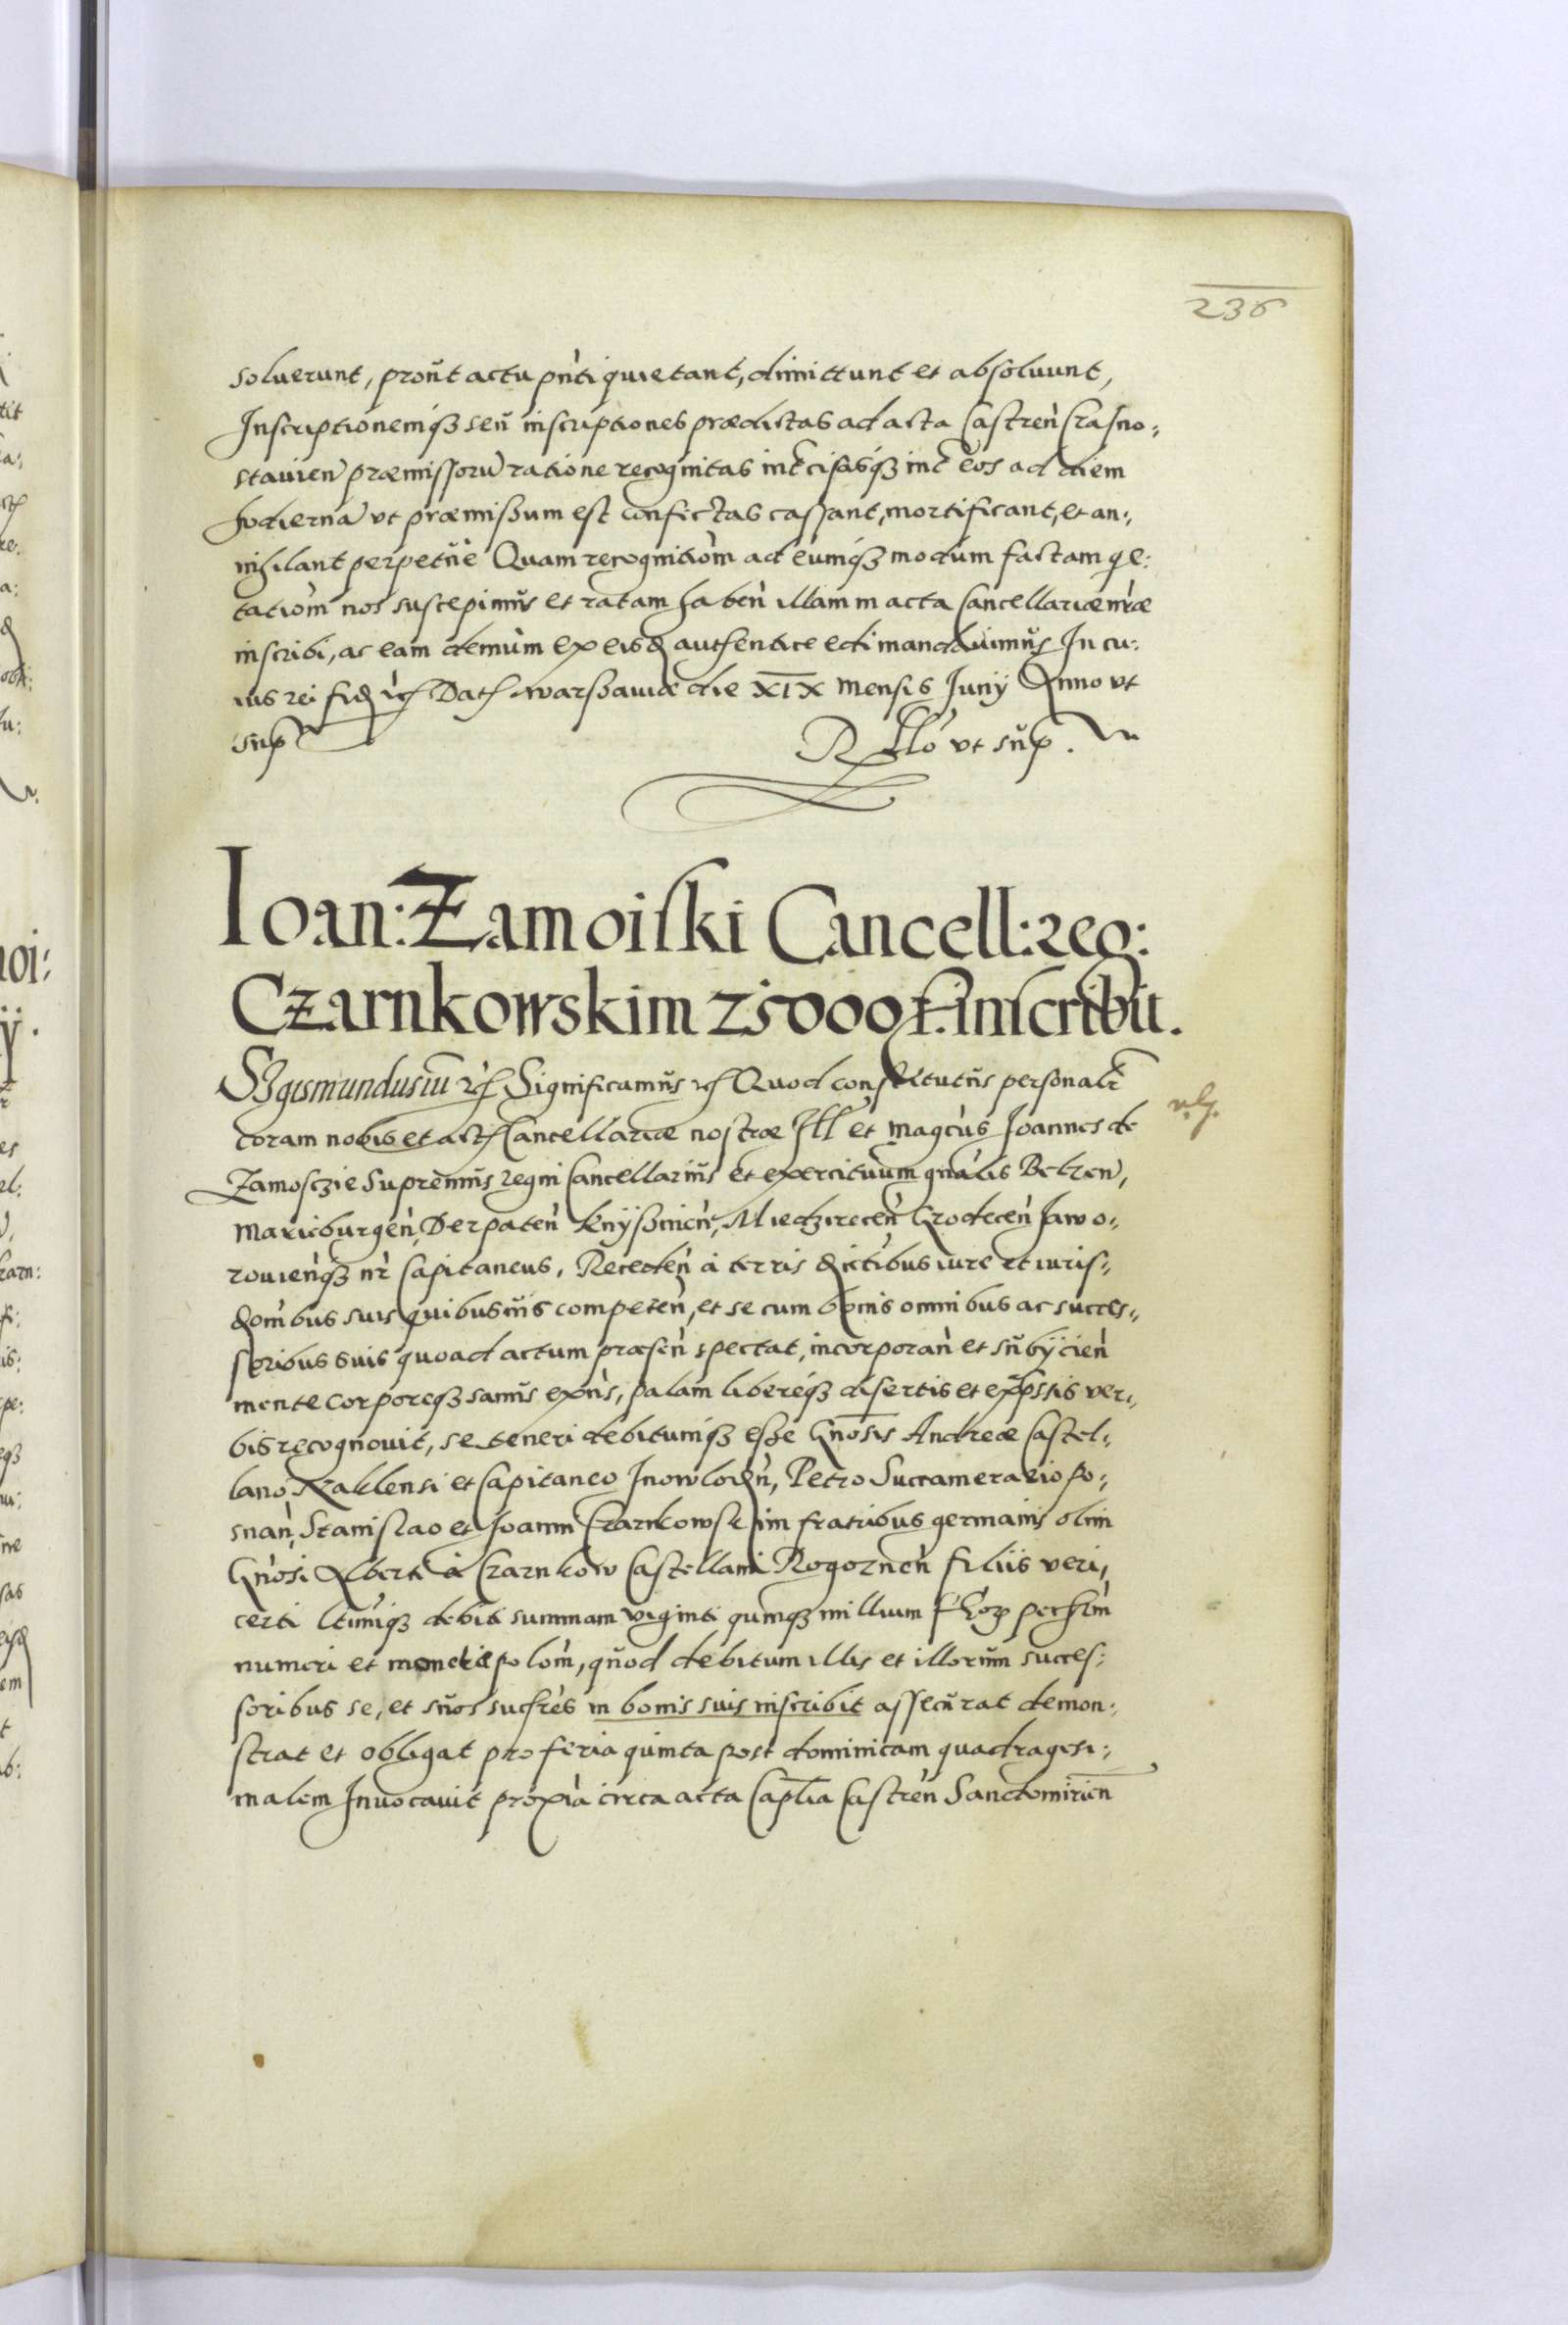 236
soluerunt, proŭt actu pn̄ti quietant, dimittunt et absoluunt,
Inscriptionemq₃ seŭ inscriptiones prædictas ad acta Castren̄ Crasno:
stauien̄ præmissorū ratione recognitas intercisasq₃ inter eos ad diem
hodiernā vt præmissum est confectas cassant, mortificant, et an:
nihilant perpetŭe Quam recognitiōm ad eumq₃ modum factam qe:
tatiōm nos suscepimŭs et ratam haben̄ illam in acta Cancellariæ nr̄æ
inscribi, ac eam demùm ex eisd authentice edi mandauimŭs In cu:
ius rei fid etc Dat Warsschauiæ die XIX mensis Junij Anno vt
sup
Rllō vt sŭp.
Ioan: Zamoiski Cancell: reg:
Czarnkowskim 25000 f. inscribit.
Sigismundus iii etc Significamŭs etc Quod constitutŭs personalr̄
coram nobis et act Cancellariæ nostræ Ill et Magcŭs Joannes de
Zamosczie Supremŭs regni Cancellariŭs et exercituum gnālis Belzen̄,
Marieburgen̄, Derpaten̄ Knÿssinien̄, Miedzirecen̄ Grodecen̄ Jawo:
rouien̄q₃ nr̄ Capitaneus, Receden̄ à terris dictibus iure et iuris:
dombus suis quibusuis competen̄, et se cum bonis omnibus ac succes:
soribus suis quoad actum præsen̄ spectat, incorporan̄ et sŭbÿcien̄
mente corporeq₃ sanŭs exn̄s, palam libereq₃ disertis et expssis ver:
bis recognouit, se teneri debitumq₃ esse Gnōsis Andreæ Castel:
lano Naklensi et Capitaneo Inowlodn̄, Petro Succamerario Po:
snan̄, Stanislao et Joanni Czarnkowskim fratribus germanis olim
Gnōsi Alberti à Czarnkow Castellani Rogoznen̄ filiis veri,
certi ltimiq₃ debiti summam viginti quinq₃ millium flor pechlm
numeri et monetæ polom̄, quod debitum illis et illorŭm succes:
soribus se, et sŭos sucrēs in bonis suis inscribit assecŭrat demon:
strat et obligat pro feria quinta post dominicam quadragesi:
malem Inuocauit proxīa circa acta Caplīa Castren̄ Sandomirien̄